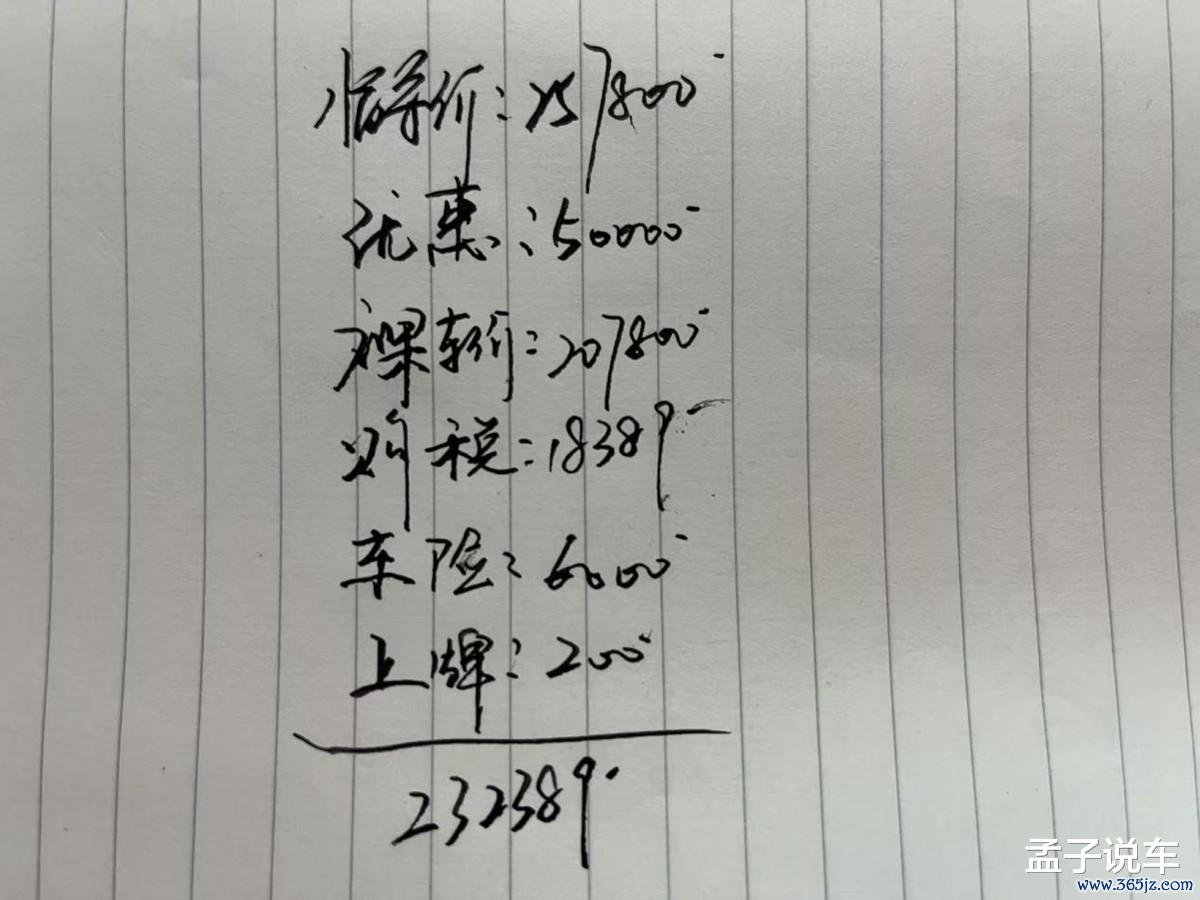 指导价：257800
优惠：50000
裸车价：207800
购税：18389
车险：6000
上牌：200
232389.
孟子说车
www.365jz.com